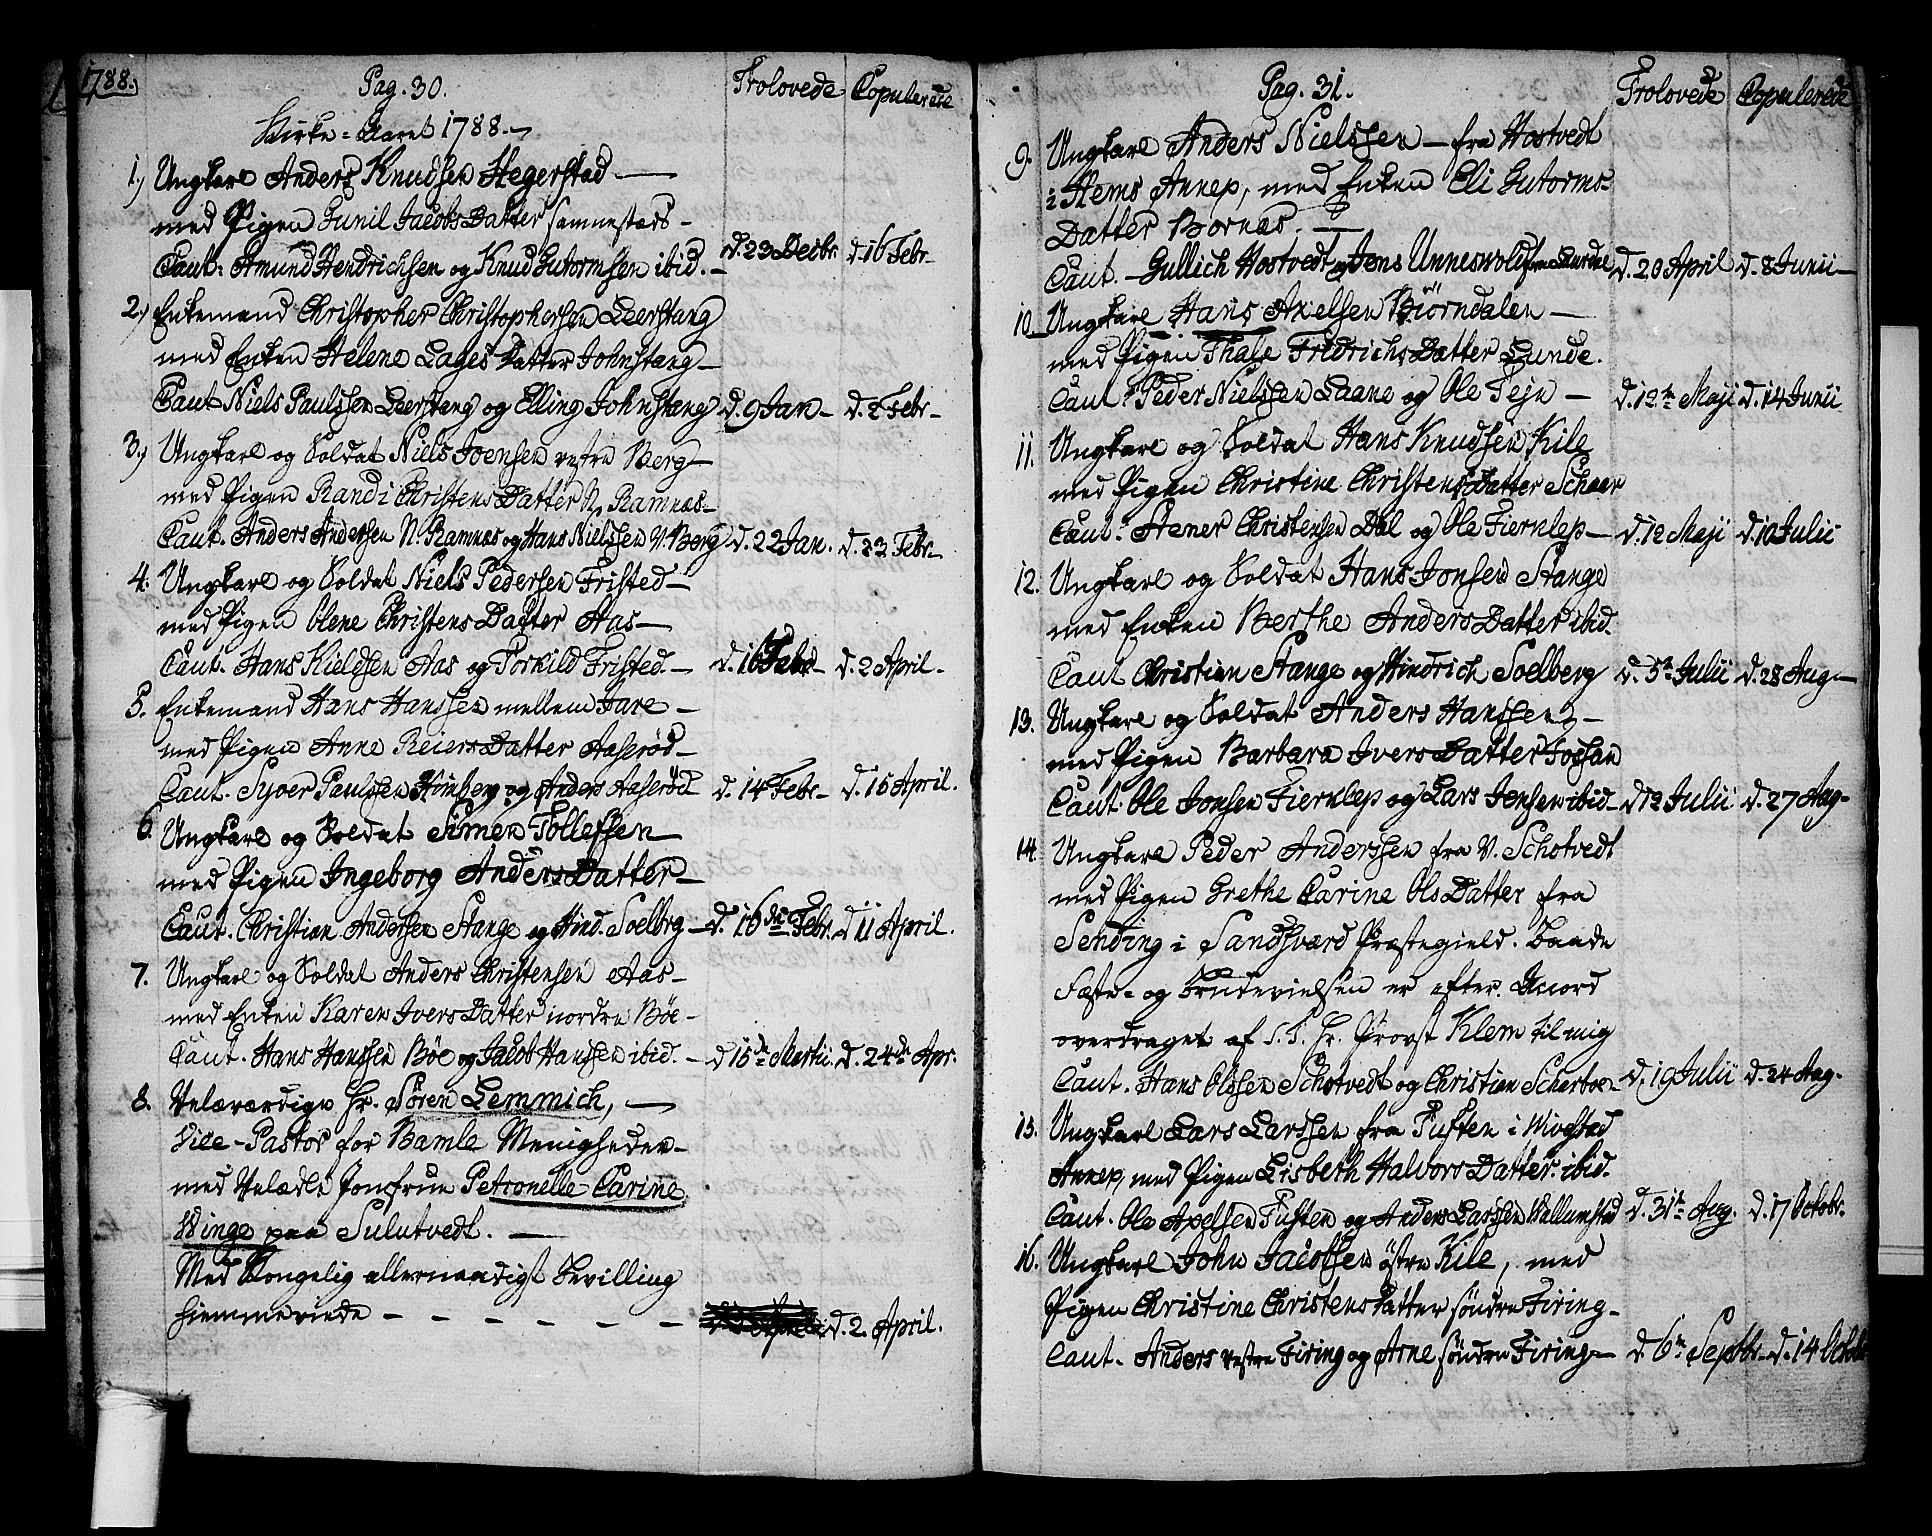 1788.
Pag. 30.
Trolovede Copulerede
Kirke-Aaret 1788.
1.) Ungkarl Anders Knudsen Hegerstad
med Pigen Gunil Jacobs Datter sammesteds
Caut: Amund Hendrichsen og Knud Gutormsen ibid. d. 23 Decbr. d. 16 Febr.
2.) Enkemand Christopher Christophersen Leerstang
med Enken Helene Lages Datter Johnstang
Caut Niels Paulssen Leerstang og Elling Johnstang d. 9 Jan d. 2 Febr
3.) Ungkarl og Soldat Niels Joensen vestre Berg
med Pigen Randi Christens Datter N. Ramnæs
Caut. Anders Anderssen N. Ramnæs og Hans Nielssen V. Berg d. 22 Jan. d. 23 Febr
4. Ungkarl og Soldat Niels Pedersen Fristed
med Pigen Olene Christens Datter Aas
Caut. Hans Kieldsen Aas og Torkild Fristed. d. 16 Febr d. 2 April.
5. Enkemand Hans Hanssen mellem Fare
med Pigen Anne Reiers Datter Aaserød
Caut. Syver Paulssen Himberg og Anders Aaserød d. 14 Febr d. 15 April.
6. Ungkarl og Soldat Simen Tollefsen
med Pigen Ingeborg Anders Datter
Caut. Christian Andersen Stange og Hind. Soelbrg d. 16de Febr. d 11 April.
7. Ungkarl og Soldat Anders Christensen Aas
med Enken Karen Ivers Datter nordre Bøe
Caut. Hans Hanssen Bøe og Jacob Hanssen ibid. d 15de Martii. d. 24de Apr.
8. Velærværdige Hr. Søren Lemmich,
Vice-Pastor for Bamle Menigheder
med Velædle Jomfrue Petronelle Carine
Winge paa Sulutvedt.
Med Kongelig allernaadigst Bevilling
hiemmeviede d. 2. April.
Pag. 31.
Trolovede Copulerede
9. Ungkarl Anders Nielssen fra Hostvedt
i Hems Annex, med Enken Eli Gutorms
Datter Bornæs.
Caut. Gullich Hostvedt og Jens Unneswold fra Laurdal d. 20 April d. 8 Junii
10. Ungkarl Hans Axelsen Biörndalen
med Pigen Thale Fridrichs Datter Lunde.
Caut: Peder Nielssen Laane og Ole Tejn d. 12te Maji d. 14 Junii
11. Ungkarl og Soldat Hans Knudssen Kile
med Pigen Christine Christens Datter Schaar
Caut: Stener Christensen Dal og Ole Fierklep d. 12 Maji d. 10 Julii
12. Ungkarl og Soldat Hans Jonsen Stange
med Enken Berthe Anders Datter ibid.
Caut Christian Stange og Hindrich Soelberg d. 5te Julii d. 28 Aug
13. Ungkarl og Soldat Anders Hanssen
med Pigen Barbara Ivers Datter Fossan
Caut Ole Jonsen Fierklep og Lars Jonsen ibid d 12 Julii d. 27 Aug
14. Ungkarl Peder Anderssen fra V. Schotvedt
med Pigen Grethe Carine Ols Datter fra
Sending i Sandsværd Præstegield. Baade
Fæste- og Brudevielsen er efter Accord
overdraget af S. T. Hr. Provst Klem til mig
Caut. Hans Olssen Schotvedt og Christian Scherboe d. 19 Julii d. 24 Aug.
15. Ungkarl Lars Larssen fra Tuften i Wivestad
Annex, med Pigen Lisbeth Halvors Datter. ibid.
Caut. Ole Axelsen Tuften og Anders Larssen Wallumstad d. 31te Aug. d. 17 Octobr.
16. Ungkarl John Jacobsen östre Kile, med
Pigen Christine Christens Datter söndre Firing
Caut. Anders vestre Firing og Arne söndre Firing d. 6te Septbr d. 14 Octobr